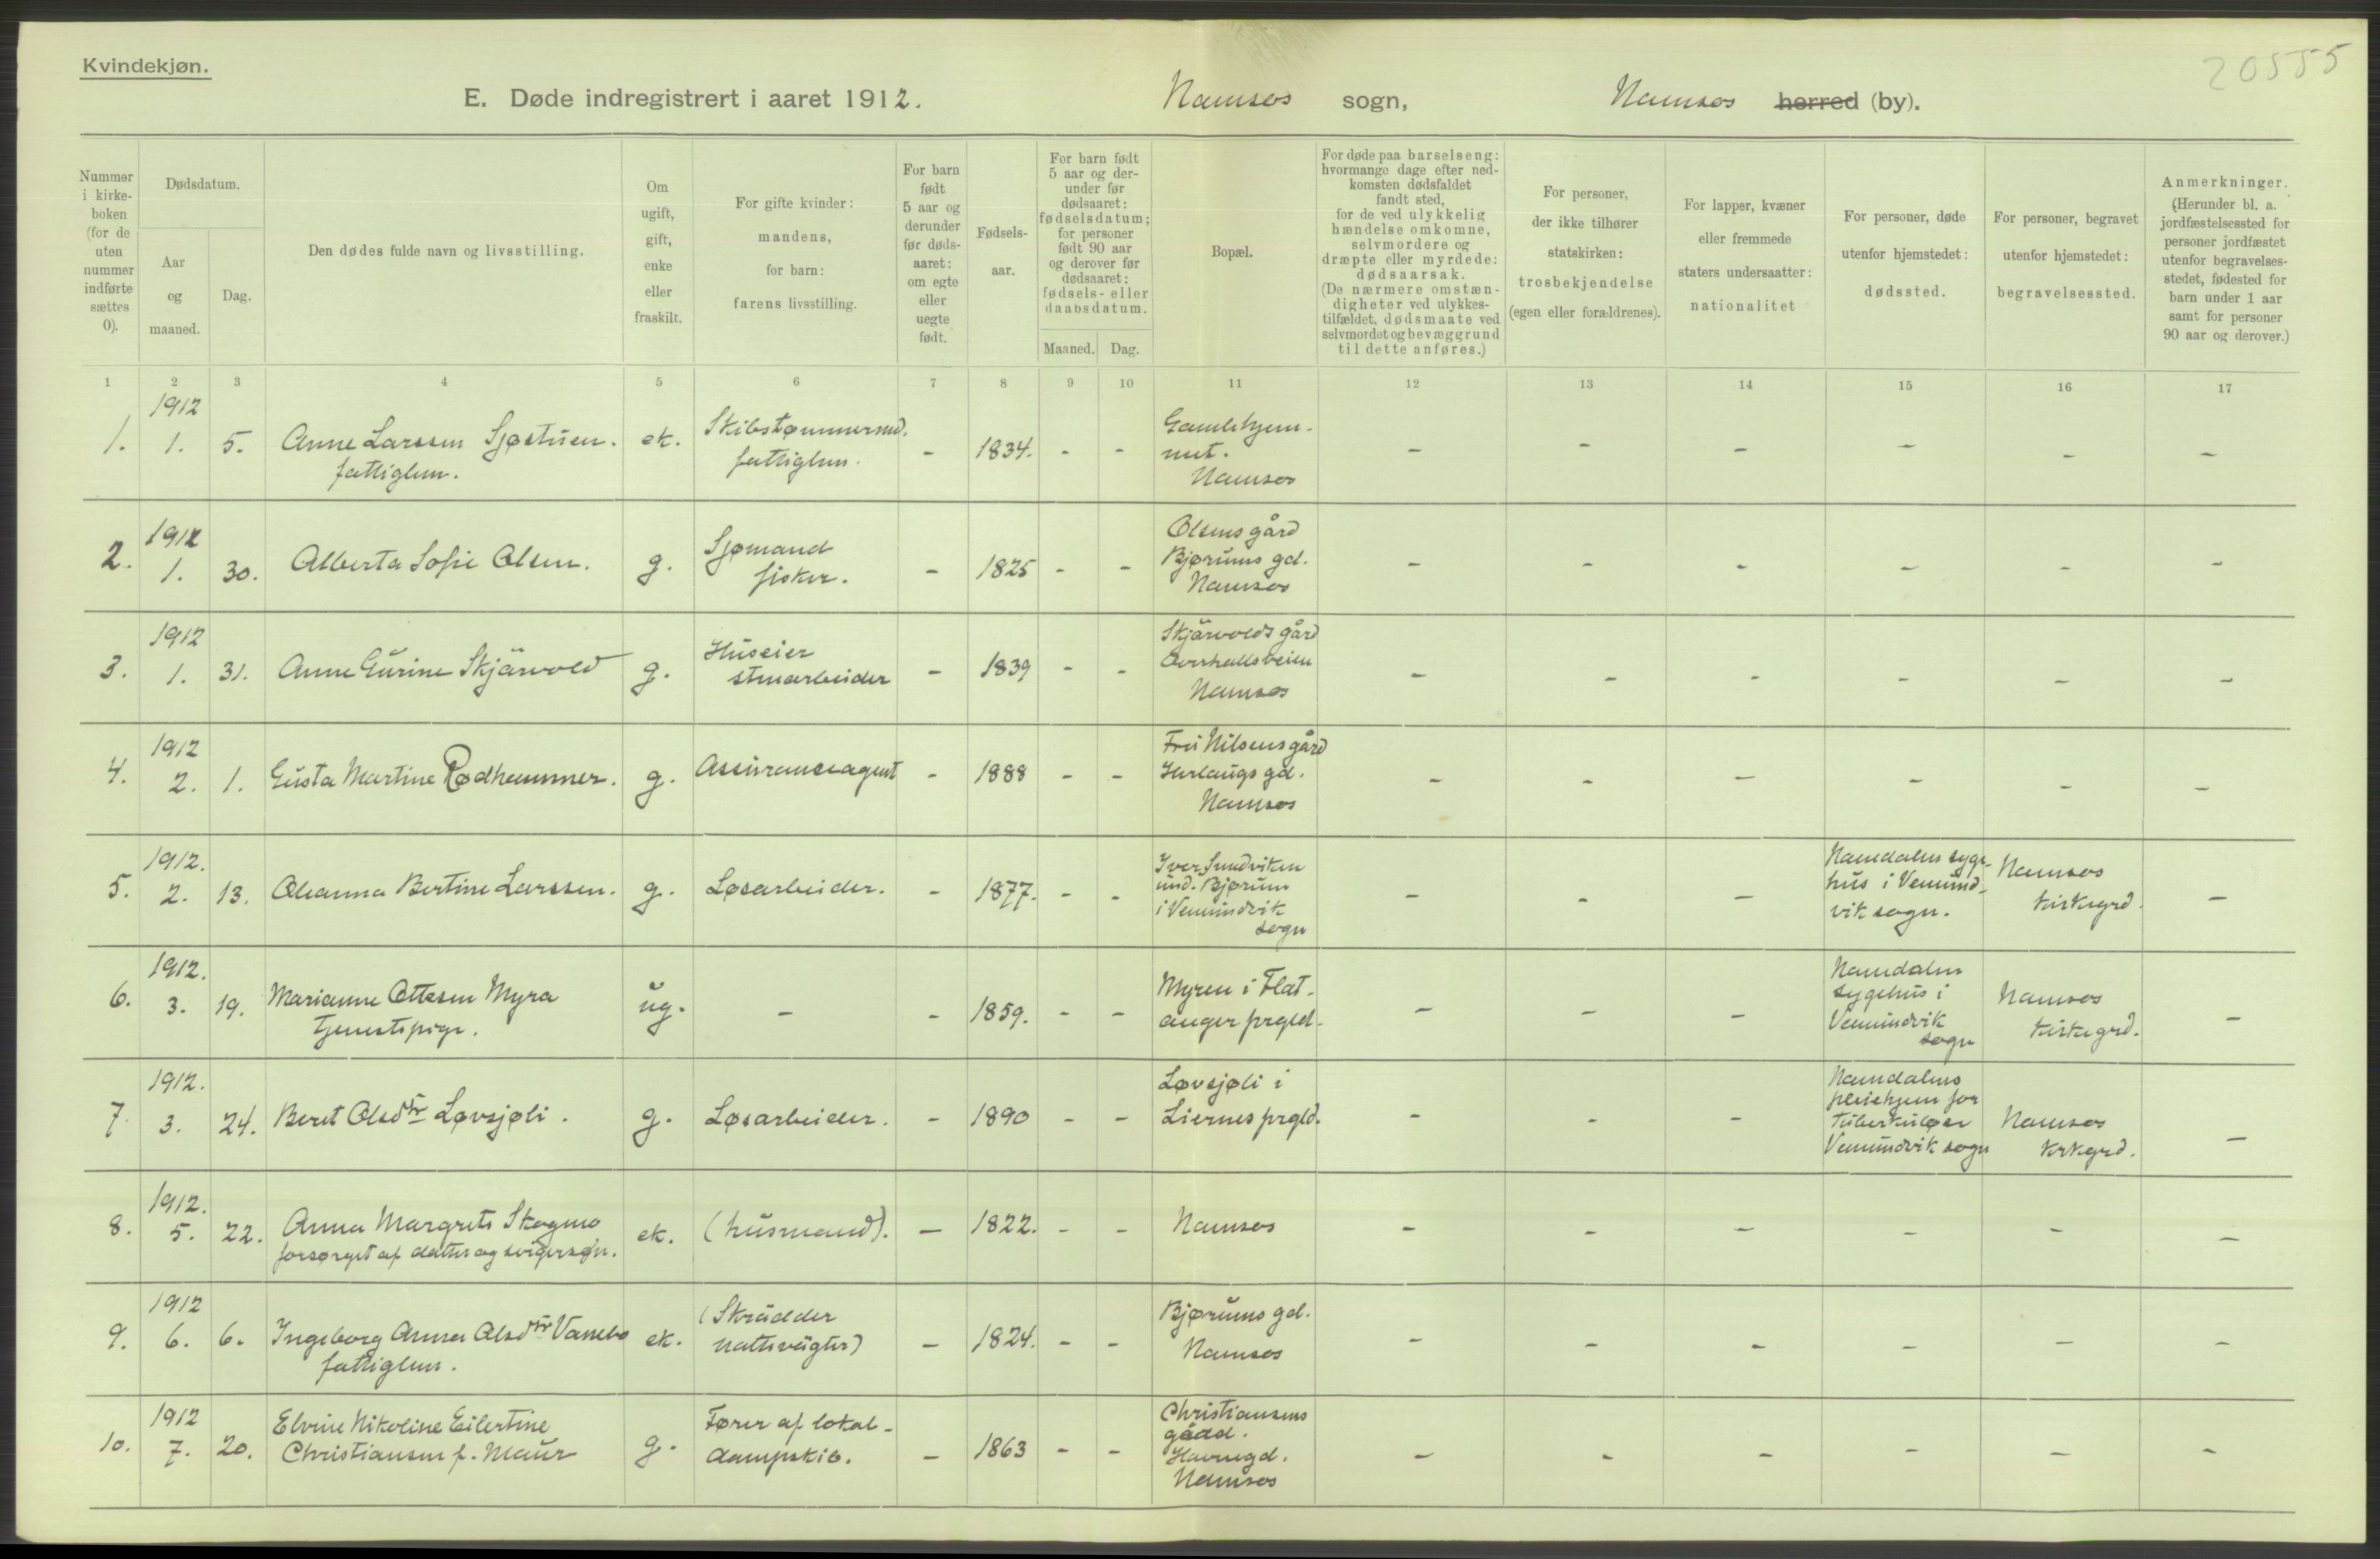 20555
Kvindekjøn.
E. Døde indregistrert i aaret 1912. Namsos sogn, Namsos herred (by).
Nummer i kirkeboken (for de uten nummer indførte sættes 0).
Dødsdatum.
Aar og maaned.
Dag.
Den dødes fulde navn og livsstilling.
Om ugift, gift, enke eller fraskilt.
For gifte kvinder: mandens, for barn: farens livsstilling.
For barn født 5 aar og derunder før dødsaaret: om egte eller uegte født.
Fødselsaar.
For barn født 5 aar og derunder før dødsaaret: fødselsdatum; for personer født 90 aar og derover før dødsaaret: fødsels- eller daabsdatum.
Maaned. Dag.
Bopæl.
For døde paa barselseng: hvormange dage efter nedkomsten dødsfaldet fandt sted, for de ved ulykkelig hændelse omkomne, selvmordere og dræpte eller myrdede: dødsaarsak. (De nærmere omstændigheter ved ulykkestilfældet, dødsmaate ved selvmordet og bevæggrund til dette anføres.)
For personer, der ikke tilhører statskirken: trosbekjendelse (egen eller forældrenes).
For lapper, kvæner eller fremmede staters undersaatter: nationalitet
For personer, døde utenfor hjemstedet: dødssted.
For personer, begravet utenfor hjemstedet: begravelsessted.
Anmerkninger. (Herunder bl. a. jordfæstelsessted for personer jordfæstet utenfor begravelsesstedet, fødested for barn under 1 aar samt for personer 90 aar og derover.)
1 2 3 4 5 6 7 8 9 10 11 12 13 14 15 16 17
1. 1912 1. 5. Anne Larssen Sjøstuen. fattiglem. ek. Skibstømmermd. fattiglem. - 1834. - - Gamlehjemmet. Namsos - - - - - -
2. 1912 1. 30. Alberta Sofie Olsen. g. Sjømand fisker. - 1825 - - Olsens gård Bjørums gd. Namsos - - - - - -
3. 1912 1. 31. Anne Gurine Skjärvold g. Huseier stenarbeider - 1839 - - Skjärvolds gård Overhallsveien Namsos - - - - - -
4. 1912 2. 1. Gusta Martine Rødhammer. g. Assuranseagent - 1888 - - Fru Nilsens gård Herlaugs gd. Namsos - - - - - -
5. 1912. 2. 13. Oleanna Bertine Larssen. g. Løsarbeider. - 1877. - - Iver Sundviken und. Bjørum i Vemundvik sogn - - - Namdalens sygehus i Vemundvik sogn. Namsos kirkegrd. -
6. 1912. 3. 19. Marianne Ottesen Myra Tjenestepige. ug. - - 1859. - - Myren i Flatanger prgld. - - - Namdalens sygehus i Vemundvik sogn Namsos kirkegrd. -
7. 1912. 3. 24. Beret Olsdtr Løvsjøli. g. Løsarbeider. - 1890 - - Løvsjøli i Liernes prgld. - - - Namdalens pleiehjem for tuberkuløse Vemundvik sogn Namsos krkgrd. -
8. 1912. 5. 22. Anna Margrete Skogmo forsørget af datter og svigersøn. ek. (husmand). - 1822. - - Namsos - - - - - -
9. 1912 6. 6. Ingeborg Anna Olsdtr Vannebo fattiglem. ek. (Skrädder nattevägter) - 1824. - - Bjørums gd. Namsos - - - - - -
10. 1912 7. 20. Elvine Nikoline Eilertine Christiansen f. Maur g. Fører af lokaldampskib. - 1863 - - Christiansens gård. Havnegd. Namsos - - - - - -